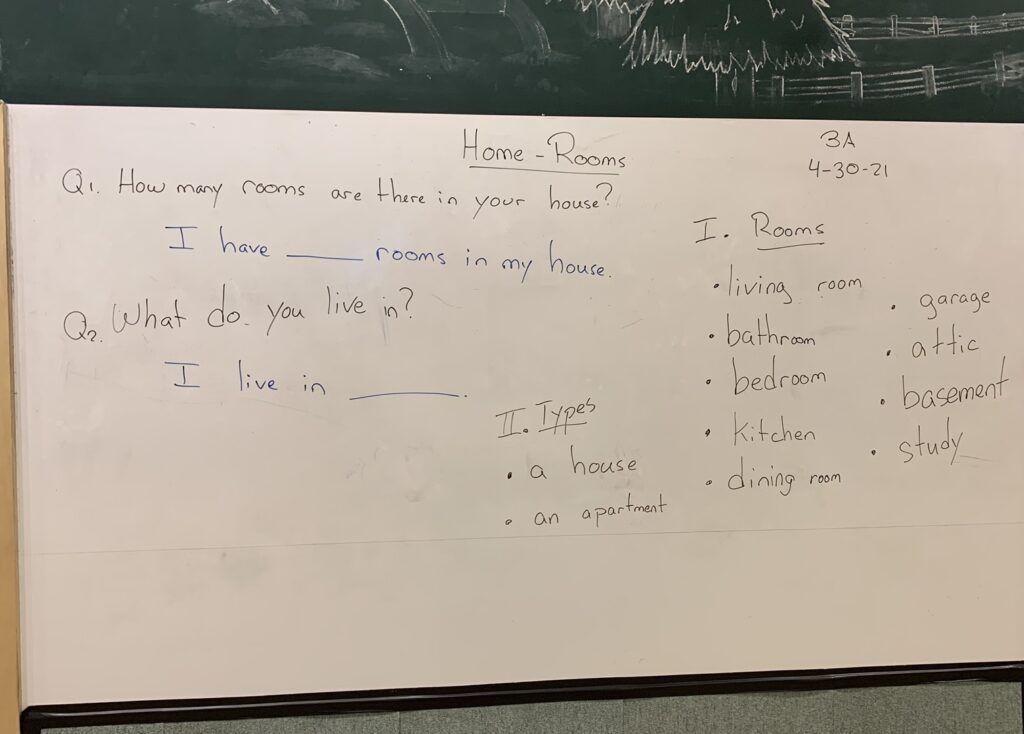 Home - Rooms
3A
4-30-21
Q1. How many rooms are there in your house?
I have ____ rooms in my house.
Q2. What do you live in?
I live in ____.
I. Rooms
• living room
• bathroom
• bedroom
• kitchen
• dining room
• garage
• attic
• basement
• study
II. Types
• a house
• an apartment